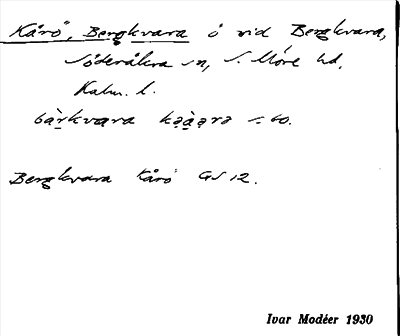 Kårö, Bergkvara ö vid Bergkvara,
Söderåkra sn, S. Möre hd,
Kalm. l.
Bergkvara Kårö GS 12.
Ivar Modéer 1930